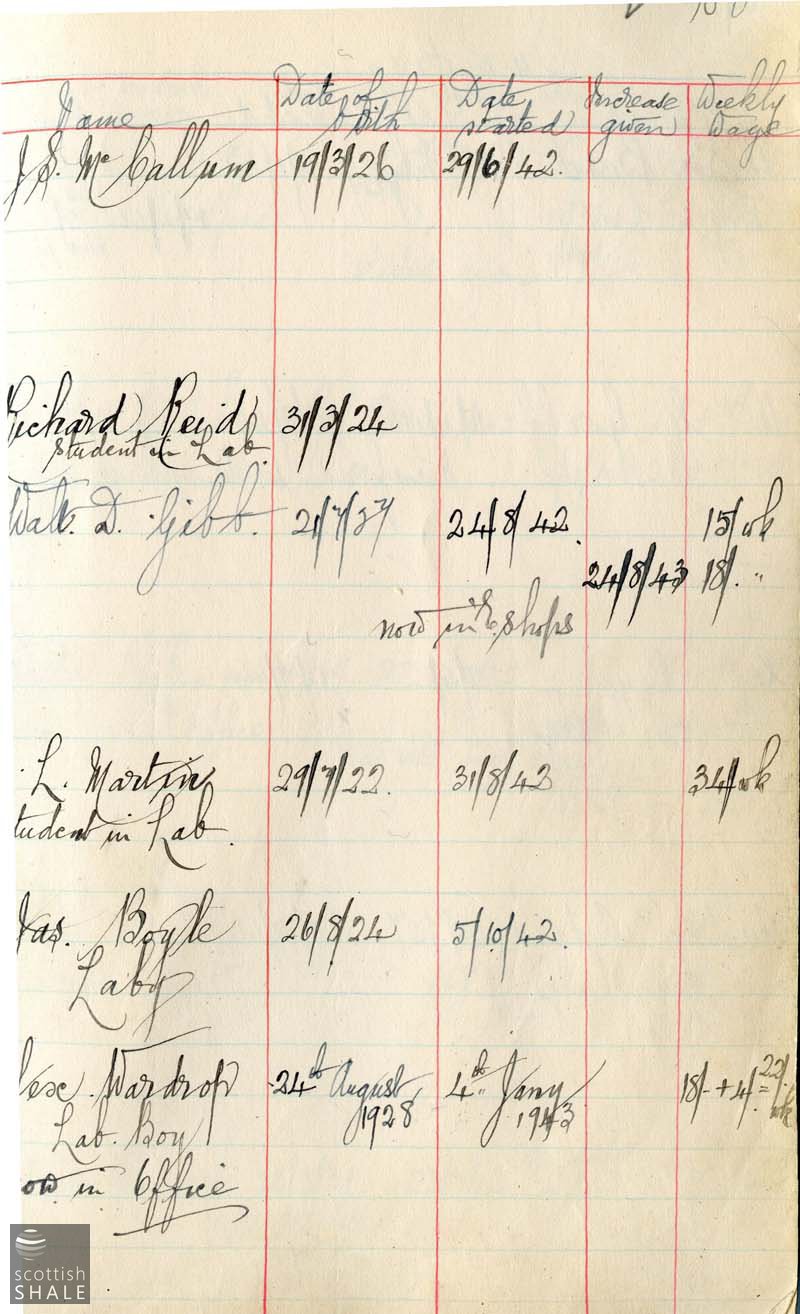 Name Date of birth Date started Increase given Weekly Wage
J. S. McCallum 19/3/26 29/6/42.
Richard Reid 31/3/24
Student in Lab.
Walt. D. Gibb. 21/7/27 24/8/42. 15/ wk
24/8/43 18/- "
now in shops
L. Martin 29/7/22. 31/8/42 34/ wk
Student in Lab.
Jas. Boyle 26/8/24 5/10/42.
Laby
lex. Wardrop 24th August 1928 4th Jany 1943 18/- + 4/- = 22/- wk
Lab. Boy
ow in Office
scottish
SHALE